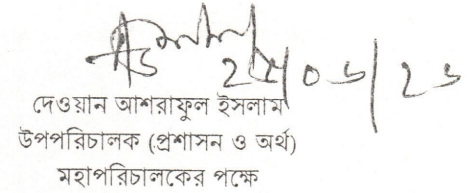 দেওয়ান আশরাফুল ইসলাম
উপপরিচালক (প্রশাসন ও অর্থ)
মহাপরিচালকের পক্ষে